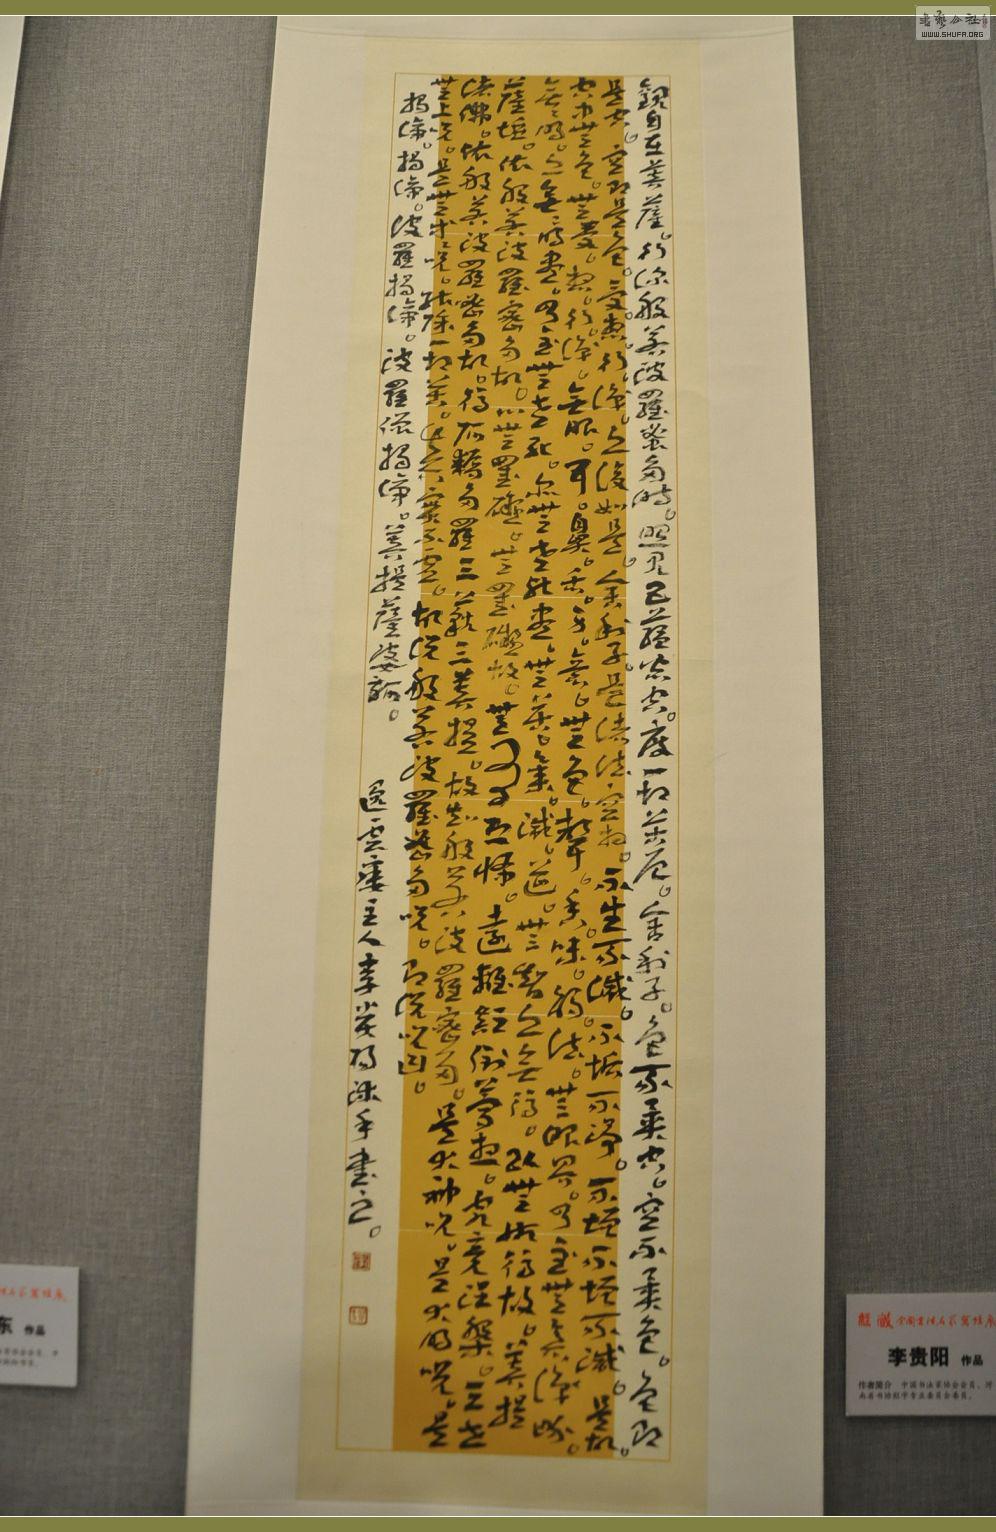 觀自在菩薩。行深般若波羅蜜多時。照見五蘊皆空。度一切苦厄。舍利子。色不異空。空不異色。色即
是空。空即是色。受想行識。亦復如是。舍利子。是諸法空相。不生不滅。不垢不淨。不增不增不減。是故
空中無色。無受。想。行。識。無眼。耳。鼻。舌。身。意。無色。聲。香。味。觸。法。無眼界。乃至無意識界。
無無明。亦無無明盡。乃至無老死。亦無老死盡。無苦。集。滅。道。無智亦無得。以無所得故。菩提
薩埵。依般若波羅蜜多故。心無罣礙。無罣礙故。無有恐怖。遠離顛倒夢想。究竟涅槃。三世
諸佛。依般若波羅蜜多故。得阿耨多羅三藐三菩提。故知般若波羅蜜多。是大神咒。是大明咒。是
無上咒。是無等等咒。能除一切苦。真實不虛。故說般若波羅蜜多咒。即說咒曰。
揭諦揭諦。波羅揭諦。波羅僧揭諦。菩提薩婆訶。
主人李貴陽沐手書之。
李贵阳 作品
作者简介 中国书法家协会会员、河
南省书协刻字专业委员会委员。
东 作品
WWW.SHUFA.ORG